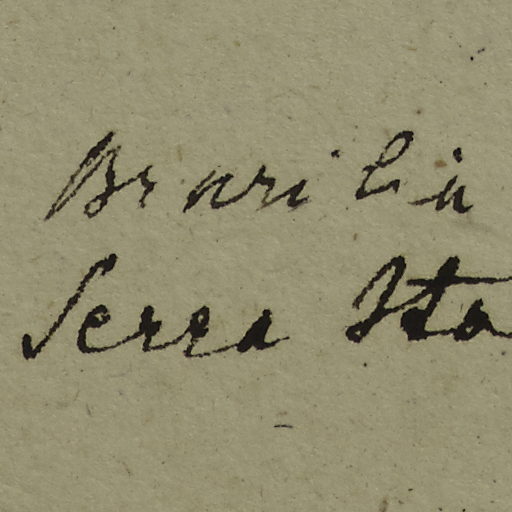 Brasilia
Serra Ita